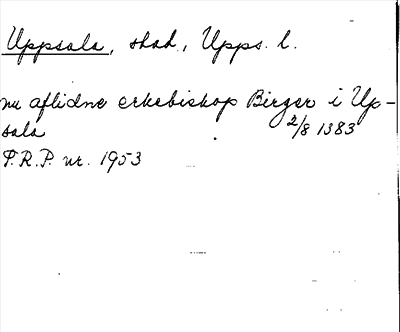 Uppsala, stad, Upps. l.
nu aflidne erkebiskop Birger i Up-
sala 2/8 1383
S.R.P. nr. 1953